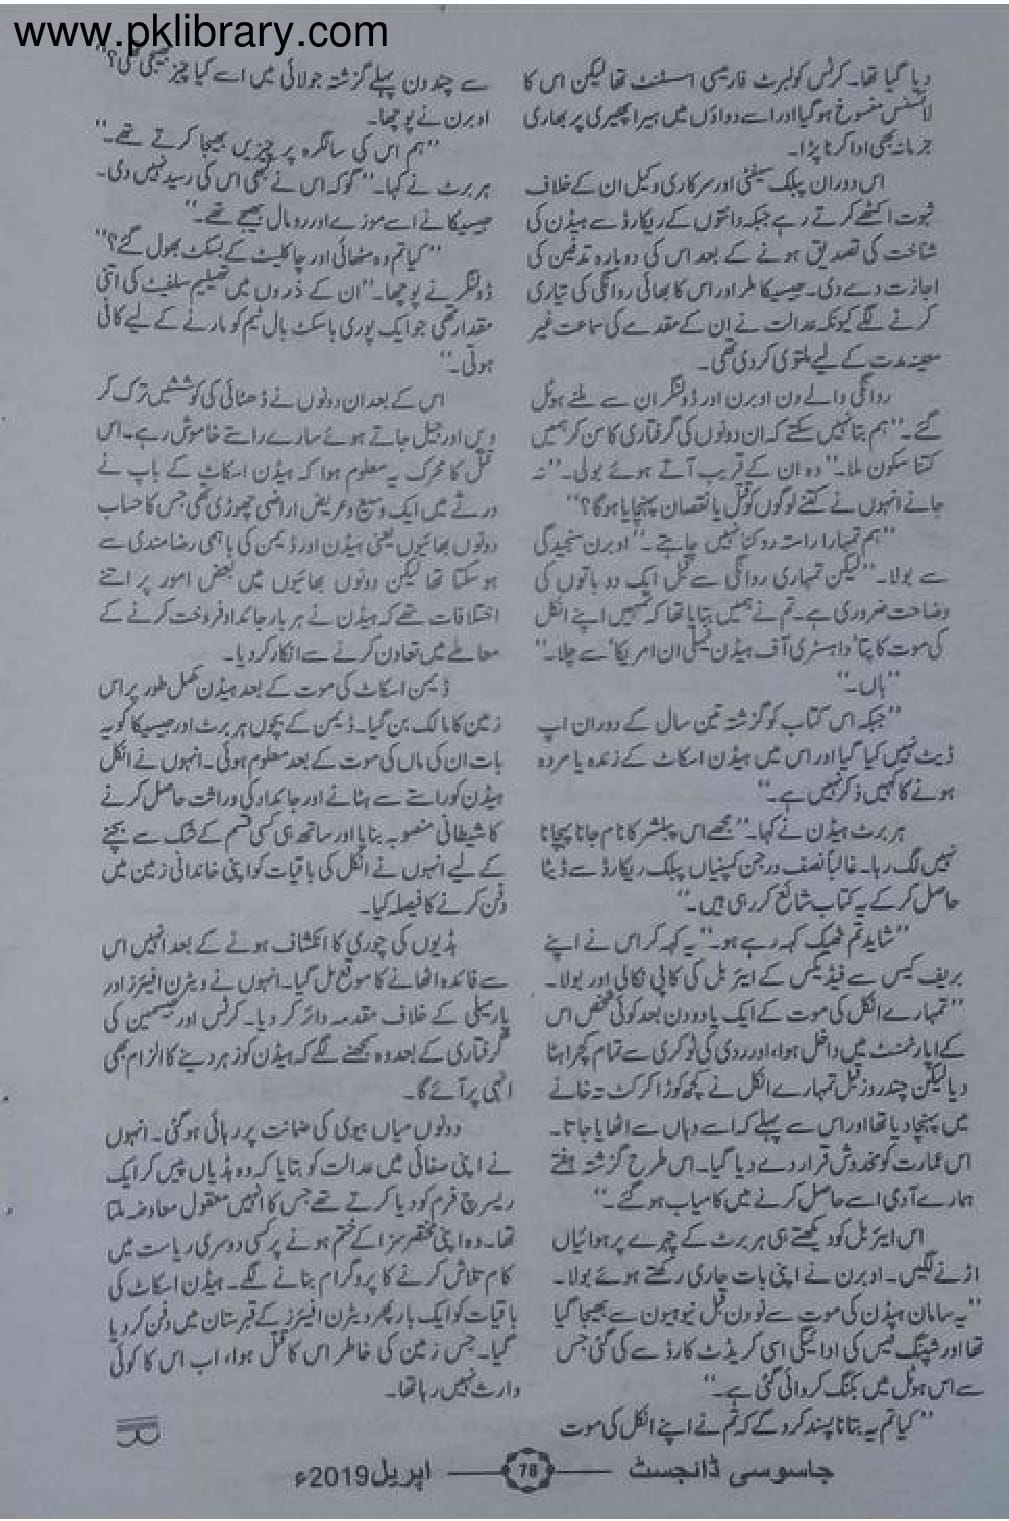 www.pklibrary.com
دیا گیا تھا۔ کرٹس کولبرٹ فارمیسی اسسٹنٹ تھا لیکن اس کا
لائسنس منسوخ ہو گیا اور اسے دواؤں میں ہیرا پھیری پر بھاری
جرمانہ بھی ادا کرنا پڑا۔
اس دوران پبلک سیفٹی اور سرکاری وکیل ان کے خلاف
ثبوت اکٹھے کرتے رہے جبکہ دانتوں کے ریکارڈ سے ہیڈن کی
شناخت کی تصدیق ہونے کے بعد اس کی دوبارہ تدفین کی
اجازت دے دی۔ جیسیکا ملر اور اس کا بھائی روانگی کی تیاری
کرنے لگے کیونکہ عدالت نے ان کے مقدمے کی سماعت غیر
معینہ مدت کے لیے ملتوی کر دی تھی۔
روانگی والے دن اوبرن اور ڈولنگر ان سے ملنے ہوٹل
گئے۔ ”ہم بتا نہیں سکتے کہ ان دونوں کی گرفتاری کا سن کر ہمیں
کتنا سکون ملا۔“ وہ ان کے قریب آتے ہوئے بولی۔ ”نہ
جانے انہوں نے کتنے لوگوں کو قتل یا نقصان پہنچایا ہوگا؟“
”ہم تمہارا راستہ روکنا نہیں چاہتے۔“ اوبرن سنجیدگی
سے بولا۔ ”لیکن تمہاری روانگی سے قبل ایک دو باتوں کی
وضاحت ضروری ہے۔ تم نے ہمیں بتایا تھا کہ تمہیں اپنے انکل
کی موت کا پتا ’دا ہسٹری آف ہیڈن فیملی ان امریکا‘ سے چلا۔“
”ہاں۔“
”جبکہ اس کتاب کو گزشتہ تین سال کے دوران اپ
ڈیٹ نہیں کیا گیا اور اس میں ہیڈن اسکاٹ کے زندہ یا مردہ
ہونے کا کہیں ذکر نہیں ہے۔“
ہربرٹ ہیڈن نے کہا۔ ”مجھے اس پبلشر کا نام جانا پہچانا
نہیں لگ رہا۔ غالباً نصف درجن کمپنیاں پبلک ریکارڈ سے ڈیٹا
حاصل کر کے یہ کتاب شائع کر رہی ہیں۔“
”شاید تم ٹھیک کہہ رہے ہو۔“ یہ کہہ کر اس نے اپنے
بریف کیس سے فیڈیکس کے ایئر بل کی کاپی نکالی اور بولا۔
”تمہارے انکل کی موت کے ایک یا دو دن بعد کوئی شخص اس
کے اپارٹمنٹ میں داخل ہوا، اور ردی کی ٹوکری سے تمام کچرا ہٹا
دیا لیکن چند روز قبل تمہارے انکل نے کچھ کوڑا کرکٹ تہ خانے
میں پہنچا دیا تھا اور اس سے پہلے کہ اسے وہاں سے اٹھایا جاتا۔
اس عمارت کو مخدوش قرار دے دیا گیا۔ اس طرح گزشتہ ہفتے
ہمارے آدمی اسے حاصل کرنے میں کامیاب ہو گئے۔“
اس ایئر بل کو دیکھتے ہی ہربرٹ کے چہرے پر ہوائیاں
اڑنے لگیں۔ اوبرن نے اپنی بات جاری رکھتے ہوئے بولا۔
”یہ سامان ہیڈن کی موت سے نو دن قبل نیو ہیون سے بھیجا گیا
تھا اور شپنگ فیس کی ادائیگی اسی کریڈٹ کارڈ سے کی گئی جس
سے اس ہوٹل میں بکنگ کروائی گئی ہے۔“
”کیا تم یہ بتانا پسند کرو گے کہ تم نے اپنے انکل کی موت
سے چند دن پہلے گزشتہ جولائی میں اسے کیا چیز بھیجی تھی؟“
اوبرن نے پوچھا۔
”ہم اس کی سالگرہ پر چیزیں بھیجا کرتے تھے۔“
ہربرٹ نے کہا۔ ”گو کہ اس نے کبھی اس کی رسید نہیں دی۔
جیسیکا نے اسے موزے اور رومال بھیجے تھے۔“
”کیا تم وہ مٹھائی اور چاکلیٹ کے بسکٹ بھول گئے؟“
ڈولنگر نے پوچھا۔ ”ان کے ذروں میں تھیلیم سلفیٹ کی اتنی
مقدار تھی جو ایک پوری باسکٹ بال ٹیم کو مارنے کے لیے کافی
ہوتی۔“
اس کے بعد ان دونوں نے ڈھٹائی کی کوششیں ترک کر
دیں اور جیل جاتے ہوئے سارے راستے خاموش رہے۔ اس
قتل کا محرک یہ معلوم ہوا کہ ہیڈن اسکاٹ کے باپ نے
ورثے میں ایک وسیع و عریض اراضی چھوڑی تھی جس کا حساب
دونوں بھائیوں یعنی ہیڈن اور ڈیمن کی باہمی رضامندی سے
ہو سکتا تھا لیکن دونوں بھائیوں میں بعض امور پر اتنے
اختلافات تھے کہ ہیڈن نے ہر بار جائداد فروخت کرنے کے
معاملے میں تعاون کرنے سے انکار کر دیا۔
ڈیمن اسکاٹ کی موت کے بعد ہیڈن مکمل طور پر اس
زمین کا مالک بن گیا۔ ڈیمن کے بچوں ہربرٹ اور جیسیکا کو یہ
بات ان کی ماں کی موت کے بعد معلوم ہوئی۔ انہوں نے انکل
ہیڈن کو راستے سے ہٹانے اور جائداد کی وراثت حاصل کرنے
کا شیطانی منصوبہ بنایا اور ساتھ ہی کسی قسم کے شک سے بچنے
کے لیے انہوں نے انکل کی باقیات کو اپنی خاندانی زمین میں
دفن کرنے کا فیصلہ کیا۔
ہڈیوں کی چوری کا انکشاف ہونے کے بعد انہیں اس
سے فائدہ اٹھانے کا موقع مل گیا۔ انہوں نے ویٹرن افیئرز اور
پارسیلی کے خلاف مقدمہ دائر کر دیا۔ کرٹس اور جیسمین کی
گرفتاری کے بعد وہ سمجھنے لگے کہ ہیڈن کو زہر دینے کا الزام بھی
انہی پر آئے گا۔
دونوں میاں بیوی کی ضمانت پر رہائی ہو گئی۔ انہوں
نے اپنی صفائی میں عدالت کو بتایا کہ وہ ہڈیاں پیس کر ایک
ریسرچ فرم کو دیا کرتے تھے جس کا انہیں معقول معاوضہ ملتا
تھا۔ وہ اپنی مختصر سزا کے ختم ہونے پر کسی دوسری ریاست میں
کام تلاش کرنے کا پروگرام بنانے لگے۔ ہیڈن اسکاٹ کی
باقیات کو ایک بار پھر ویٹرن افیئرز کے قبرستان میں دفن کر دیا
گیا۔ جس زمین کی خاطر اس کا قتل ہوا، اب اس کا کوئی
وارث نہیں رہا تھا۔
جاسوسی ڈائجسٹ 78 اپریل 2019ء